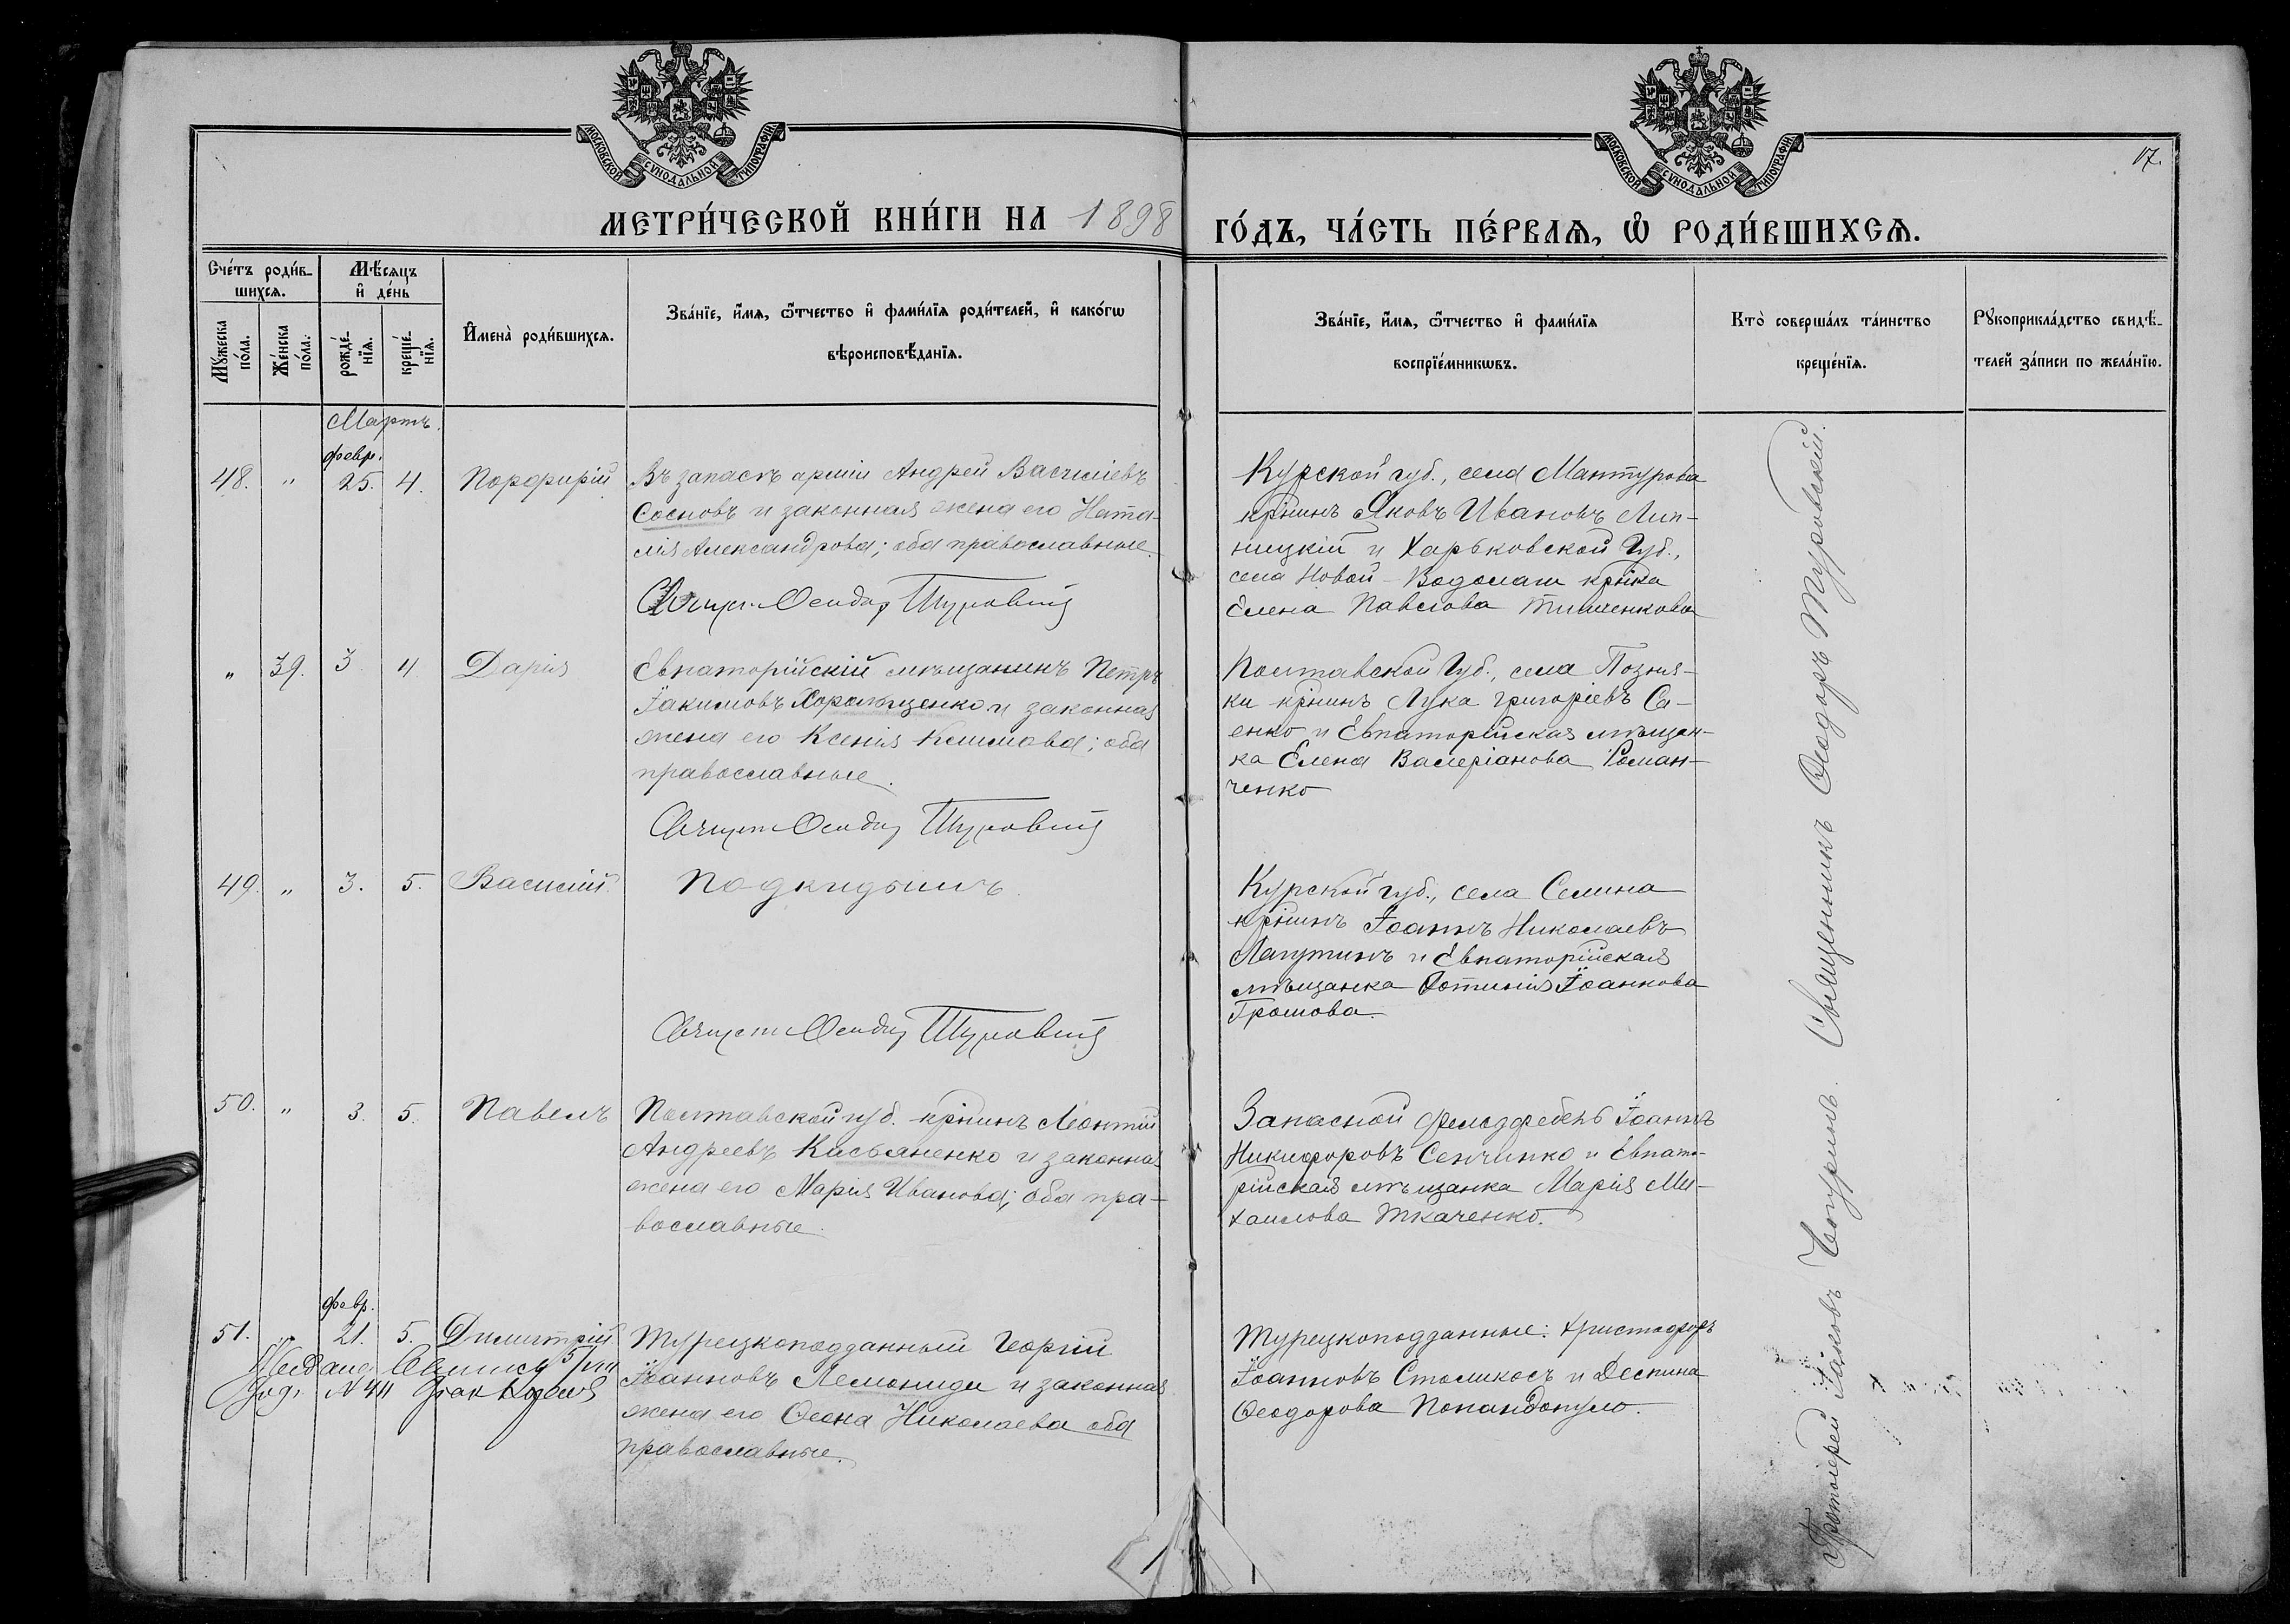 МОСКОВСКОЙ СУНОДАЛЬНОЙ ТИПОГРАФІИ
МОСКОВСКОЙ СУНОДАЛЬНОЙ ТИПОГРАФІИ
17.
МЕТРИ́ЧЕСКОЙ КНИ́ГИ НА 1898
ГО́ДЪ, ЧА́СТЬ ПЕ́РВАѦ, Ѡ҆ РОДИ́ВШИХСѦ.
Сче́тъ роди́в-
шихсѧ.
Мꙋжеска по́ла.
Же́нска по́ла.
Мѣ́сѧцъ
и҆ де́нь
рожде́-
нїѧ.
креще́-
нїѧ.
И҆мена̀ роди́вшихсѧ.
Зва́нїе, и҆́мѧ, ѻ҆́тчество и҆ фами́лїѧ роди́телей, и҆ како́гѡ
вѣроисповѣ́данїѧ.
Зва́нїе, и҆́мѧ, ѻ҆́тчество и҆ фами́лїѧ
воспрїе́мникѡвъ.
Кто̀ соверша́лъ та́инство
креще́нїѧ.
Рꙋкоприкла́дство свидѣ́-
телей за́писи по жела́нїю.
Мартъ.
февр.
48. " 25. 4. Порфирій
Въ запасѣ арміи Андрей Василіевъ
Сосновъ и законная жена его Ната-
лія Александрова; оба православные.
Священ. Ѳеодор Туровскій
Курской губ., села Мантурова
кр̃нинъ Яковъ Ивановъ Лип-
ницкій и Харьковской Губ.,
села Новой-Водолаги кр̃нка
Елена Павлова Тимченкова
" 39. 3 4 Дарія
Евпаторійскій мѣщанинъ Петръ
Іакимовъ Хоролщенко и законная
жена его Ксенія Климова; оба
православные.
Священ Ѳеодор Туровскій
Полтавской Губ., села Позня-
ки кр̃нинъ Лука Григоріевъ Са-
енко и Евпаторійская мѣщан-
ка Елена Валеріанова Роман-
ченко
49. " 3. 5. Василій
Подкидышъ.
Священ Ѳеодор Туровскій
Курской губ., села Селина
кр̃нинъ Іоаннъ Николаевъ
Лагутинъ и Евпаторійская
мѣщанка Фотинія Іоаннова
Громова.
50. " 3. 5. Павелъ
Полтавской губ. кр̃нинъ Леонтій
Андреевъ Касьяненко и законная
жена его Марія Иванова; оба пра-
вославные.
Запасной фельдфебель Іоаннъ
Никифоровъ Сенченко и Евпато-
рійская мѣщанка Марія Ми-
хаилова Ткаченко.
февр.
51. " 21. 5. Димитрій
№ 44
Турецкоподданный Георгій
Іоанновъ Лемониди и законная
жена его Ѳеона Николаева оба
православные.
Турецкоподданные: Христофоръ
Іоанновъ Стомикосъ и Деспина
Ѳеодорова Попандопуло.
Протоіерей Іаковъ Чепуринъ. Священникъ Ѳеодоръ Туровскій.